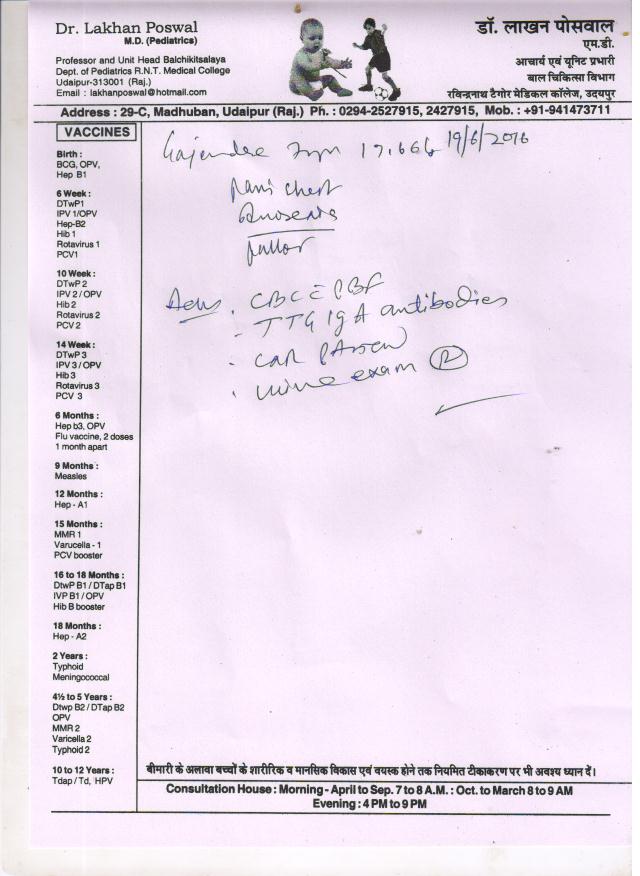 Dr. Lakhan Poswal
M.D. (Pediatrics)
Professor and Unit Head Balchikitsalaya
Dept. of Pediatrics R.N.T. Medical College
Udaipur-313001 (Raj.)
Email : lakhanposwal@hotmail.com
डॉ. लाखन पोसवाल
एम.डी.
आचार्य एवं यूनिट प्रभारी
बाल चिकित्सा विभाग
रविन्द्रनाथ टैगोर मेडिकल कॉलेज, उदयपुर
Address : 29-C, Madhuban, Udaipur (Raj.) Ph. : 0294-2527915, 2427915, Mob. : +91-941473711
VACCINES
Birth :
BCG, OPV,
Hep B1
6 Week :
DTwP1
IPV 1/OPV
Hep-B2
Hib 1
Rotavirus 1
PCV1
10 Week :
DTwP 2
IPV 2 / OPV
Hib 2
Rotavirus 2
PCV 2
14 Week :
DTwP 3
IPV 3 / OPV
Hib 3
Rotavirus 3
PCV 3
6 Months :
Hep b3, OPV
Flu vaccine, 2 doses
1 month apart
9 Months :
Measles
12 Months :
Hep - A1
15 Months :
MMR 1
Varucella - 1
PCV booster
16 to 18 Months :
DtwP B1 / DTap B1
IVP B1 / OPV
Hib B booster
18 Months :
Hep - A2
2 Years :
Typhoid
Meningococcal
4½ to 5 Years :
Dtwp B2 / DTap B2
OPV
MMR 2
Varicella 2
Typhoid 2
10 to 12 Years :
Tdap / Td, HPV
19/6/2016
chest
pallor
CBC
TTG IgA antibodies
urine exam
बीमारी के अलावा बच्चों के शारीरिक व मानसिक विकास एवं वयस्क होने तक नियमित टीकाकरण पर भी अवश्य ध्यान दें।
Consultation House : Morning - April to Sep. 7 to 8 A.M. : Oct. to March 8 to 9 AM
Evening : 4 PM to 9 PM